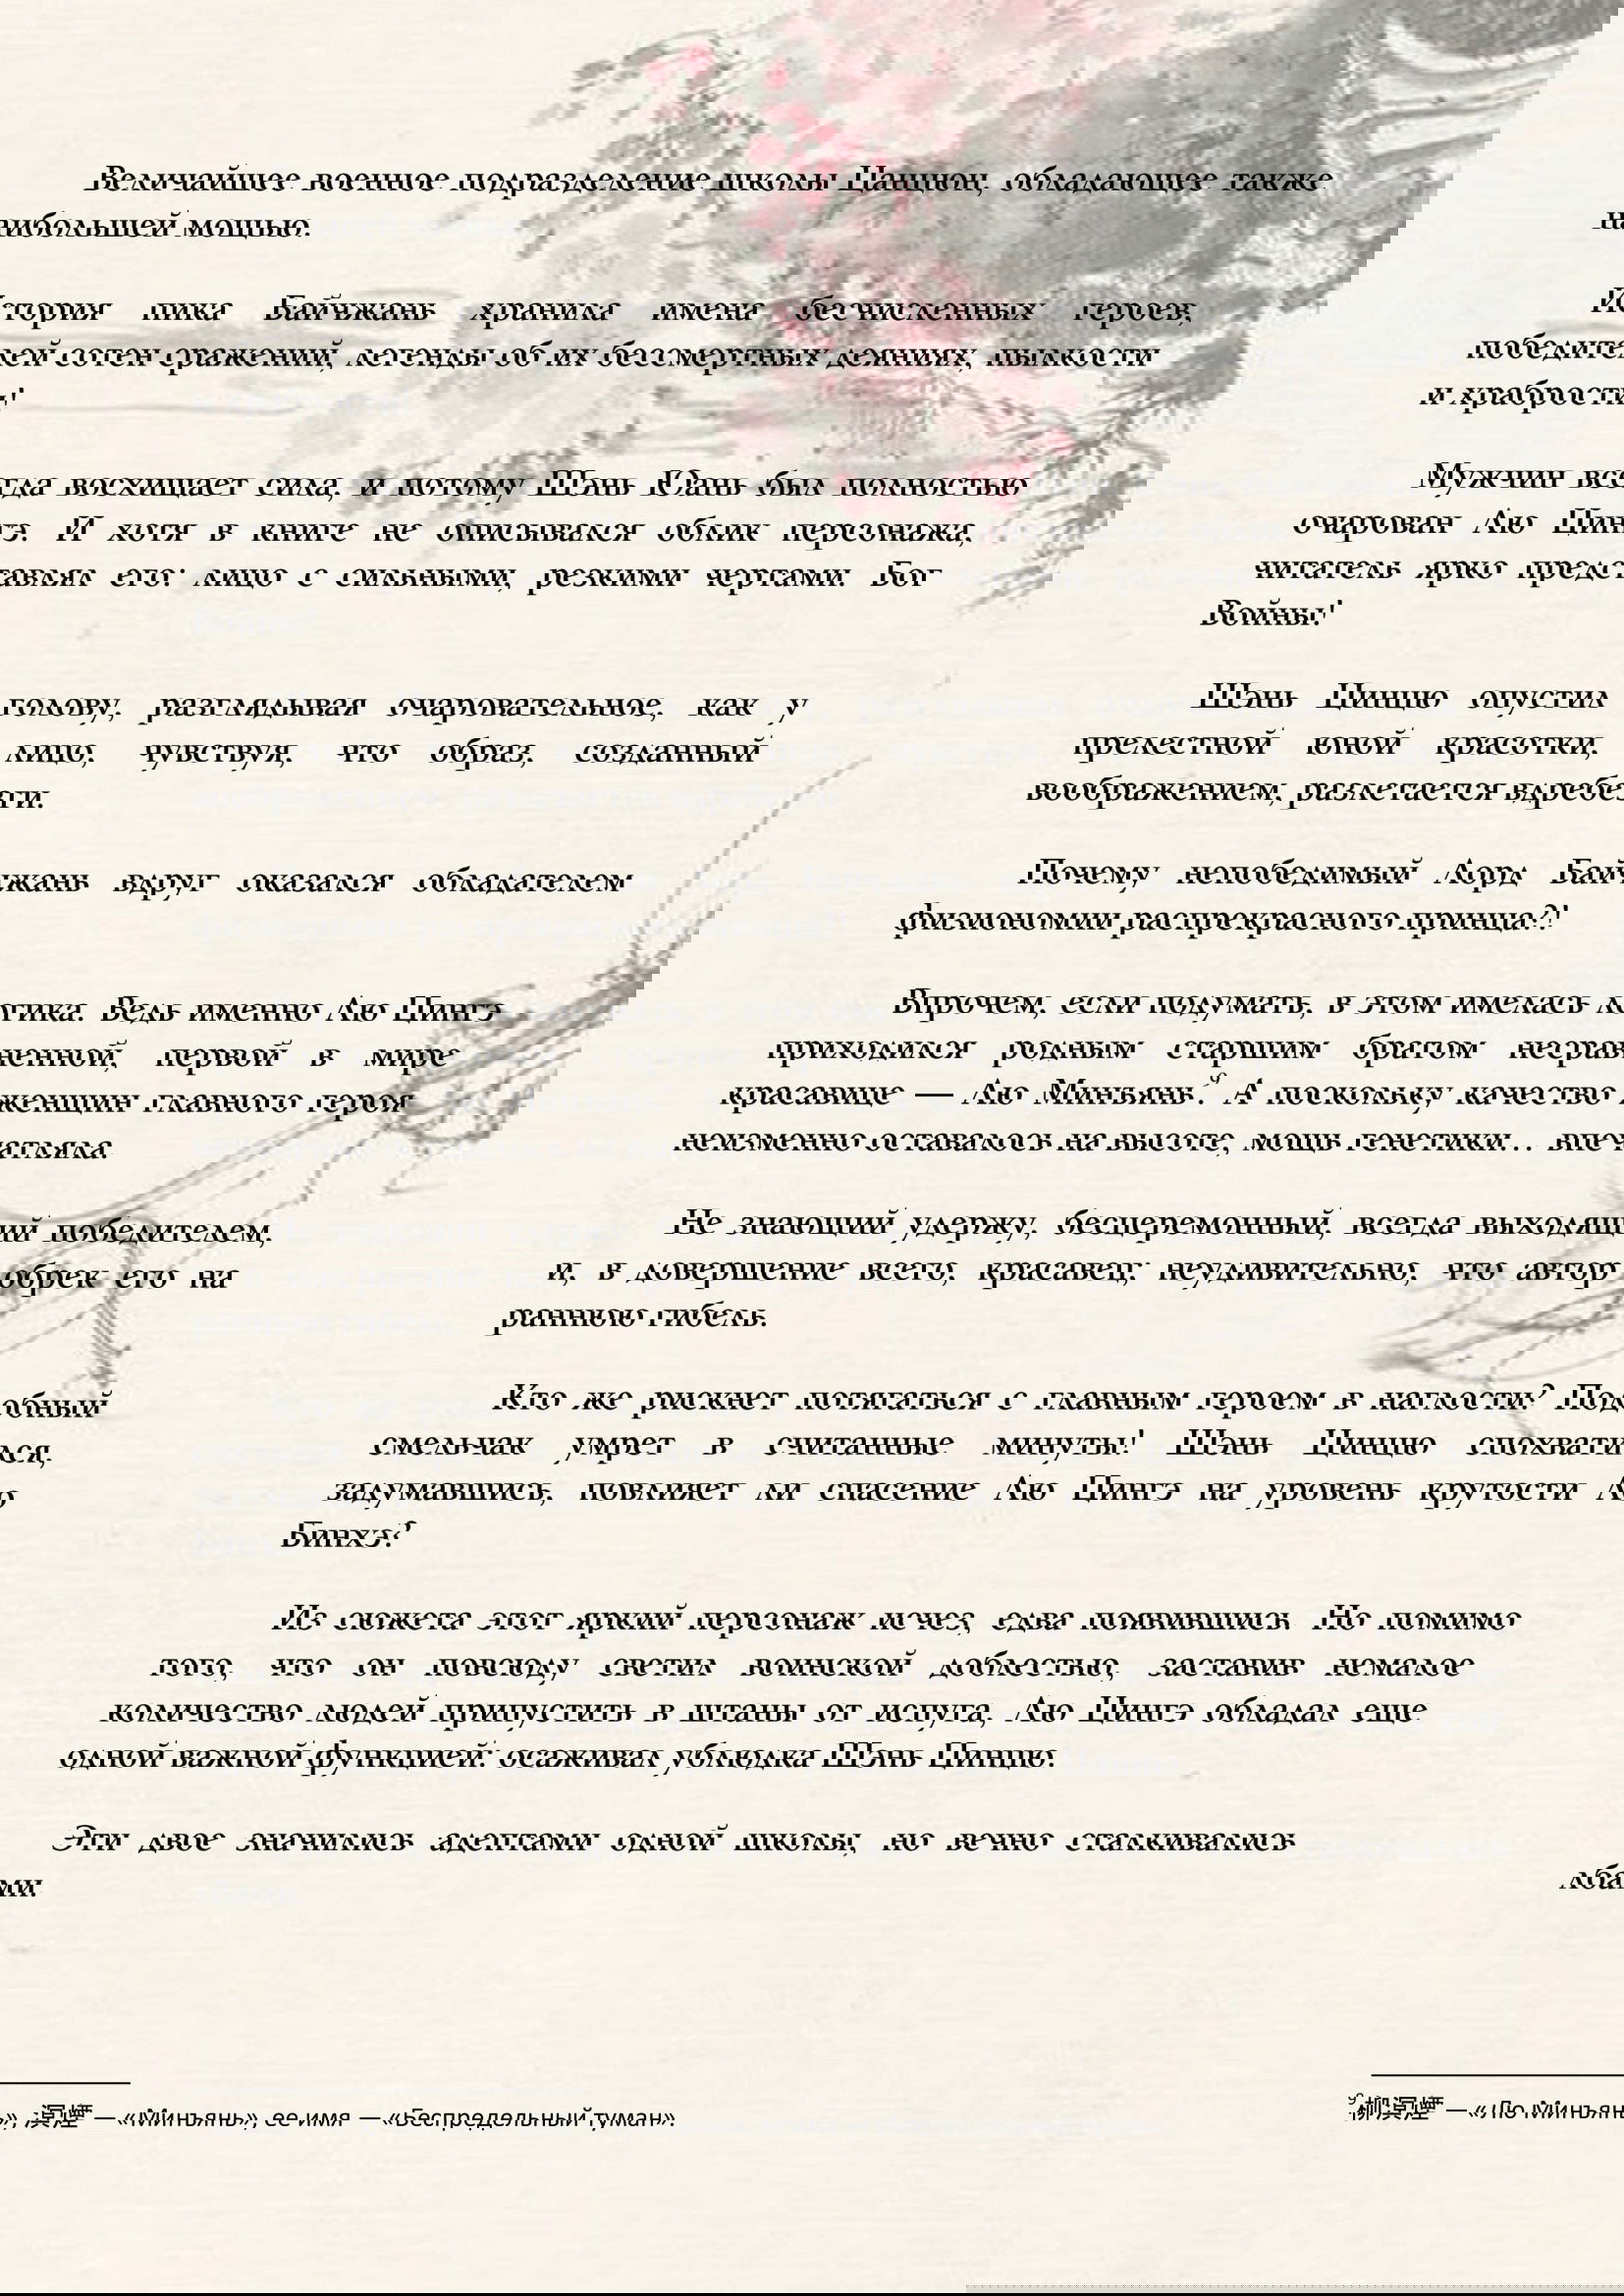 Величайшее военное подразделение школы Цанцюн, обладающее также
наибольшей мощью.
История пика Байчжань хранила имена бесчисленных героев,
победителей сотен сражений, легенды об их бессмертных деяниях, пылкости
и храбрости!
Мужчин всегда восхищает сила, и потому Шэнь Юань был полностью
очарован Лю Цингэ. И хотя в книге не описывался облик персонажа,
читатель ярко представлял его: лицо с сильными, резкими чертами. Бог
Войны!
Шэнь Цинцю опустил голову, разглядывая очаровательное, как у
прелестной юной красотки, лицо, чувствуя, что образ, созданный
воображением, разлетается вдребезги.
Почему непобедимый Лорд Байчжань вдруг оказался обладателем
физиономии распрекрасного принца?!
Впрочем, если подумать, в этом имелась логика. Ведь именно Лю Цингэ
приходился родным старшим братом несравненной, первой в мире
красавице — Лю Минъянь. А поскольку качество женщин главного героя
неизменно оставалось на высоте, мощь генетики… впечатляла.
Не знающий удержу, бесцеремонный, всегда выходящий победителем,
и, в довершение всего, красавец: неудивительно, что автор обрек его на
раннюю гибель.
Кто же рискнет потягаться с главным героем в наглости? Подобный
смельчак умрет в считанные минуты! Шэнь Цинцю спохватился,
задумавшись, повлияет ли спасение Лю Цингэ на уровень крутости Ло
Бинхэ?
Из сюжета этот яркий персонаж исчез, едва появившись. Но помимо
того, что он повсюду светил воинской доблестью, заставив немалое
количество людей припустить в штаны от испуга, Лю Цингэ обладал еще
одной важной функцией: осаживал ублюдка Шэнь Цинцю.
Эти двое значились адептами одной школы, но вечно сталкивались
лбами.
柳溟煙 — «Лю Минъянь»; 溟煙 — «Минъянь», ее имя — «Беспредельный туман»